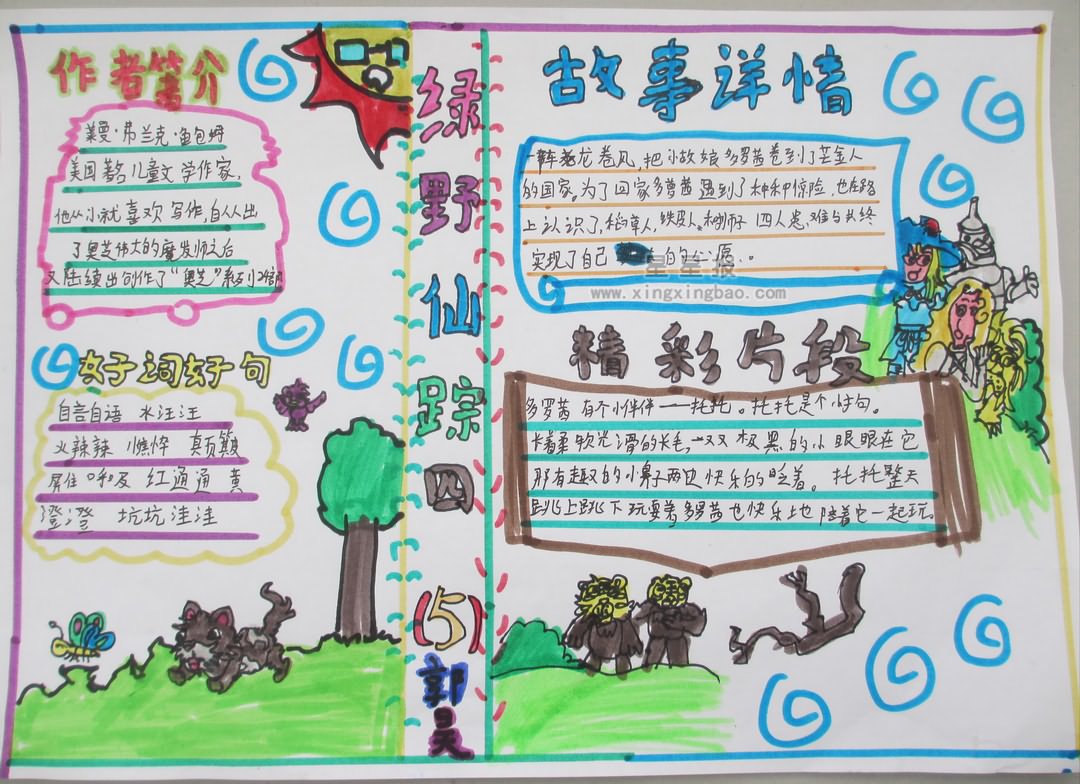 作者简介
莱曼·弗兰克·鲍姆
美国著名儿童文学作家,
他从小就喜欢写作,自从出
了奥芝伟大的魔发师之后
又陆续出创作了“奥芝”系列
好词好句
自言自语 水汪汪
火辣辣 憔悴
屏住呼及 红通通 黄
澄澄 坑坑洼洼
绿野仙踪
四(5)
郭昊
故事详情
一阵龙卷风,把小故娘多罗茜卷到了芒金人
的国家。为了回家多萝茜遇到了种种惊险,也在路
上认识了,稻草人,铁皮人,四人患难与共终
实现了自己的心愿。
星星报
www.xingxingbao.com
精彩片段
多罗茜有个小伙伴——托托。托托是个小狗。
长着柔软光滑的长毛,一双极黑的小眼眼在它
那有趣的小鼻子两边快乐的眨着。托托整天
跳上跳下玩耍着多罗茜也快乐地陪着它一起玩。